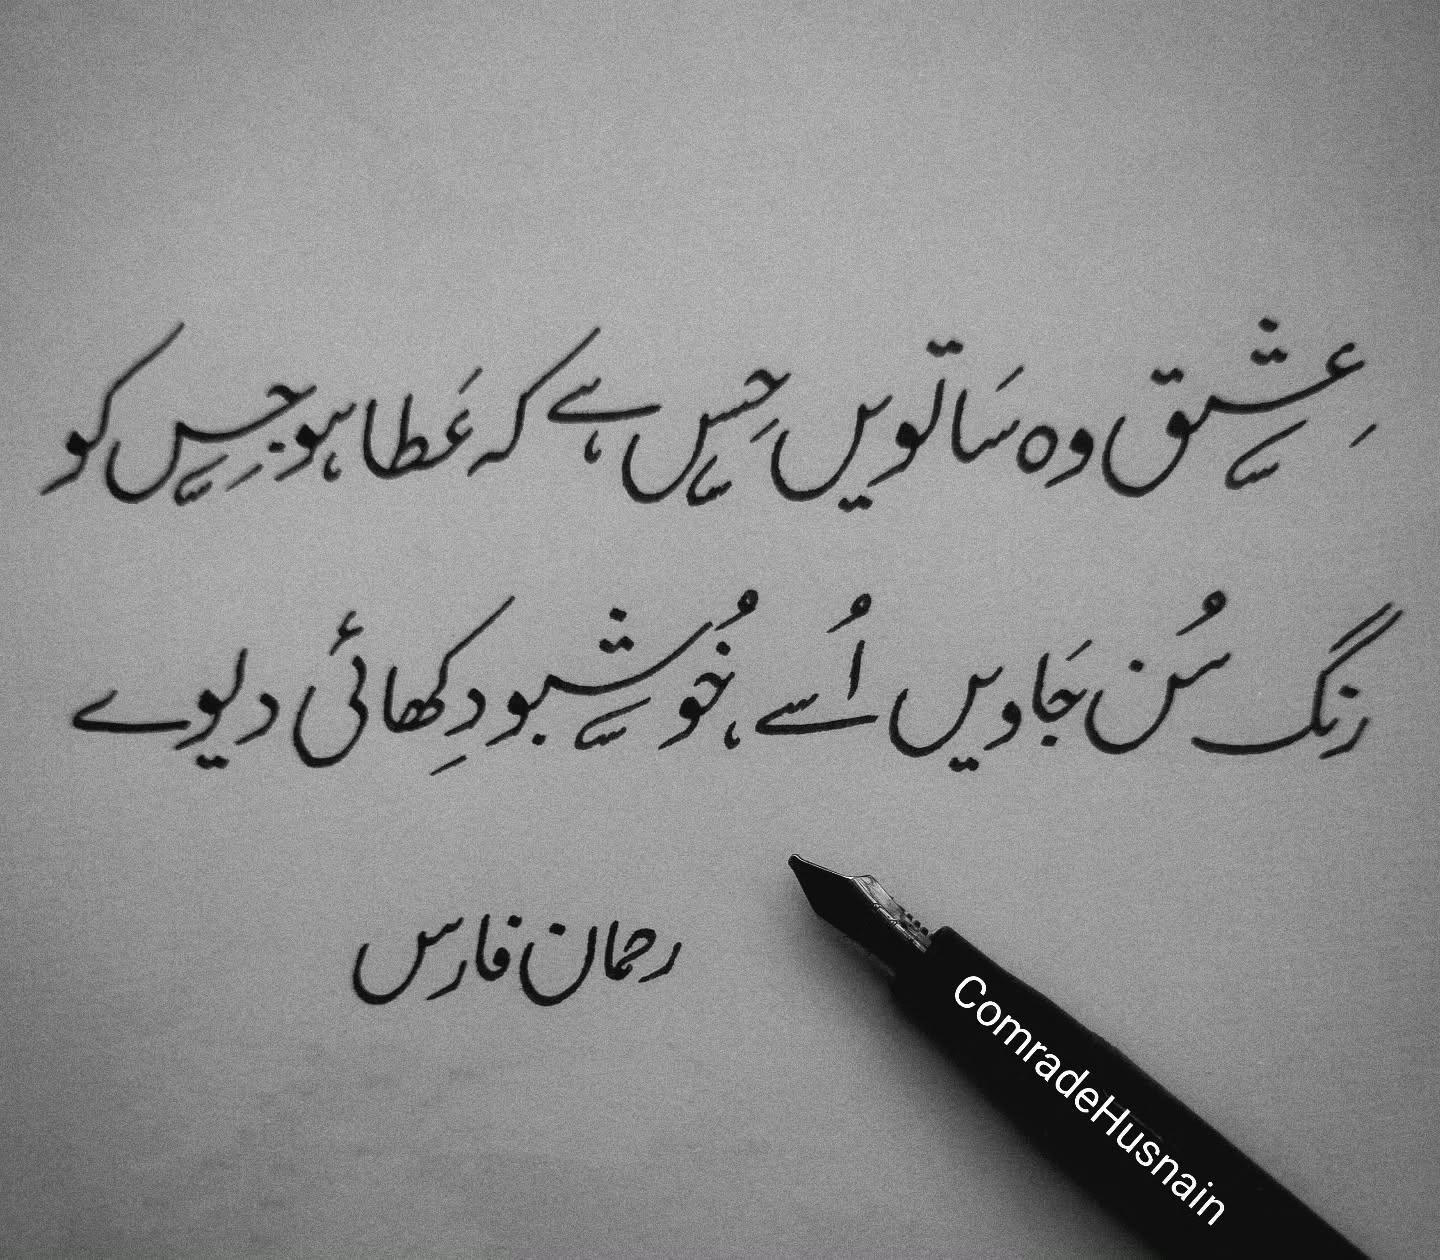 عِشق وہ سَاتویں حِس ہے کہ عَطا ہو جِس کو
رنگ سُن جَاویں اُسے، خُوشبو دِکھائی دیوے
رحمان فارس
ComradeHusnain